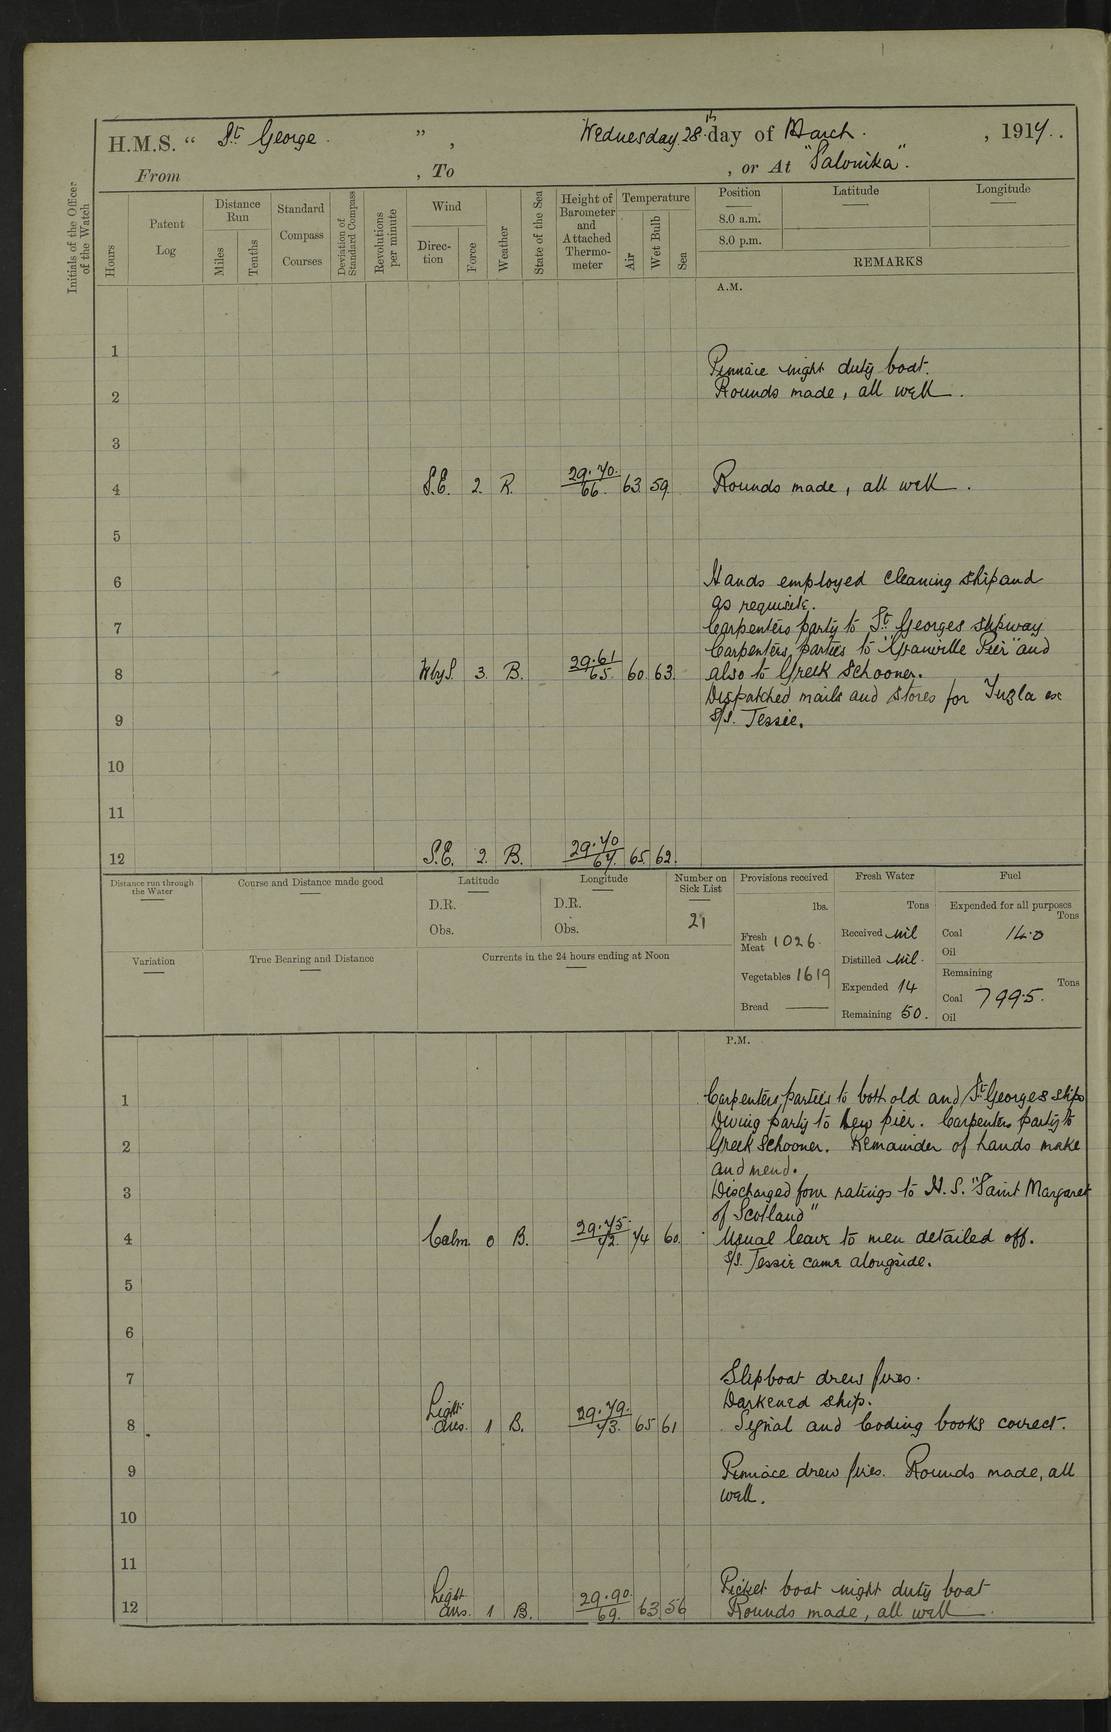 H.M.S. “ St. George ” , Wednesday 28th day of March , 1917.
From , To , or At "Salonika".
Initials of the Officer of the Watch
Hours
Patent Log
Distance Run
Miles
Tenths
Standard Compass Courses
Deviation of Standard Compass
Revolutions per minute
Wind
Direction
Force
Weather
State of the Sea
Height of Barometer and Attached Thermometer
Temperature
Air
Wet Bulb
Sea
Position Latitude Longitude
8.0 a.m.
8.0 p.m.
REMARKS
A.M.
1
Pinnace night duty boat.
2 Rounds made, all well.
3
4 S.E. 2. R. 29.70. 66. 63. 59. Rounds made, all well.
5
6 Hands employed cleaning ship and
as requisite.
7 Carpenters party to St. Georges slipway
Carpenters parties to "Granville Pier" and
8 W by S. 3. B. 29.61 65. 60. 63. also to Greek Schooner.
Dispatched mails and stores for Tuzla ex
9 S/S. Tessie.
10
11
12 S.E. 2. B. 29.70 67. 65. 62.
Distance run through the Water
Course and Distance made good
Latitude
D.R.
Obs.
Longitude
D.R.
Obs.
Number on Sick List
21
Provisions received
lbs.
Fresh Meat 1026.
Vegetables 1619
Bread ——
Fresh Water
Tons
Received Nil
Distilled Nil.
Expended 14
Remaining 50.
Fuel
Expended for all purposes
Tons
Coal 14.0
Oil
Remaining
Tons
Coal 799.5.
Oil
Variation
True Bearing and Distance
Currents in the 24 hours ending at Noon
P.M.
1 Carpenters parties to both old and St. Georges slips
Diving party to New pier. Carpenters party to
2 Greek Schooner. Remainder of hands make
and mend.
3 Discharged four ratings to H.S. "Saint Margaret
of Scotland"
4 Calm. 0 B. 29.75. 72. 74 60. Usual leave to men detailed off.
S/S. Tessie came alongside.
5
6
7 Slipboat drew fires.
Darkened ship.
8 Light airs. 1 B. 29.79. 73. 65 61 Signal and Coding books correct.
9 Pinnace drew fires. Rounds made, all
well.
10
11
Picket boat night duty boat
12 Light airs. 1 B. 29.90. 69. 63 56 Rounds made, all well.